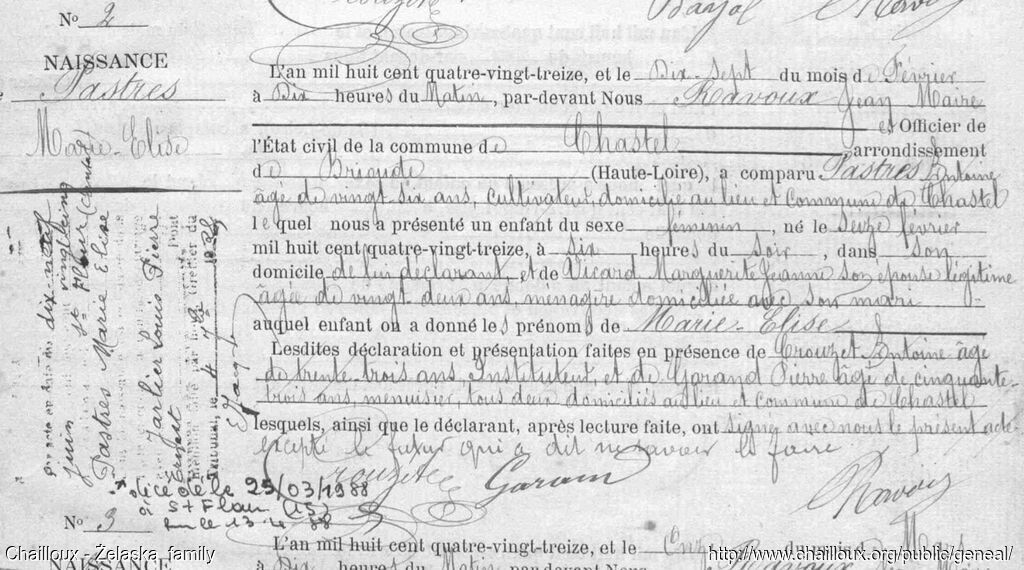 N° 2
NAISSANCE
Pastres
Marie-Elise
L'an mil huit cent quatre-vingt-treize, et le Dix-sept du mois de Février
à Dix heures du Matin, par-devant Nous Ravoux Jean Maire
et Officier de
l'État civil de la commune de Chastel arrondissement
de Brioude (Haute-Loire), a comparu Pastres Antoine
âgé de vingt six ans, cultivateur, domicilié au lieu et Commune de Chastel
lequel nous a présenté un enfant du sexe féminin, né le Seize février
mil huit cent quatre-vingt-treize, à six heures du soir, dans son
domicile de lui déclarant, et de Vicard Marguerite Jeanne son épouse légitime
âgée de vingt-deux ans, ménagère domiciliée avec son mari
auquel enfant on a donné les prénoms de Marie-Elise
Lesdites déclaration et présentation faites en présence de Crouzet Antoine âgé
de trente-trois ans, Instituteur, et de Garand Pierre âgé de cinquante-
trois ans, menuisier, tous deux domiciliés au lieu et commune de Chastel
lesquels, ainsi que le déclarant, après lecture faite, ont signé avec nous le présent acte
excepté le futur qui a dit ne savoir le faire
Crouzet Garand Ravoux
dix-neuf
juin vingt cinq
St Flour (Cantal)
Pastres Marie Elise
Jarlier Louis Pierre
décédée le 25/03/1988
à St Flour (15)
N° 3
NAISSANCE
L'an mil huit cent quatre-vingt-treize, et le Onze du mois de Mars
à Dix heures du Matin, par-devant Nous Ravoux Jean Maire
Chailloux - Želaska family
http://www.chailloux.org/public/geneal/